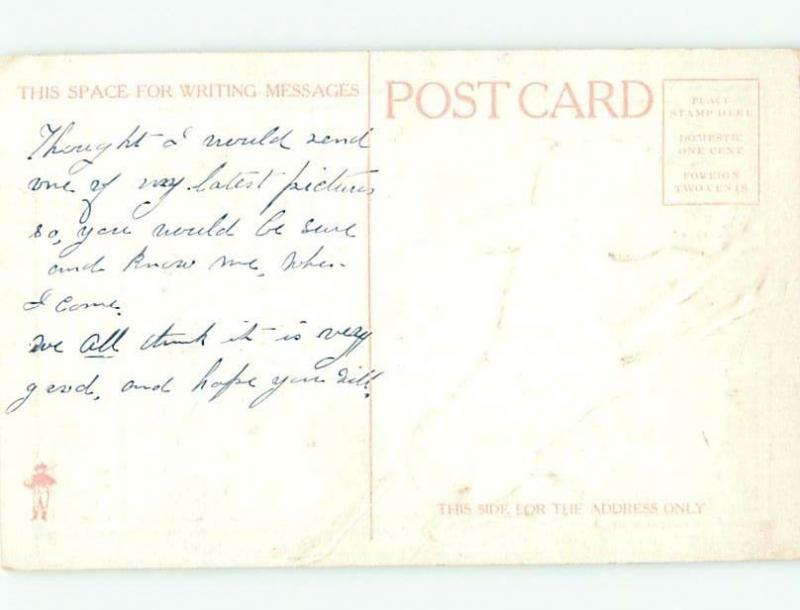 THIS SPACE FOR WRITING MESSAGES
POST CARD
PLACE
STAMP HERE
DOMESTIC
ONE CENT
FOREIGN
TWO CENTS
Thought I would send
one of my latest pictures
so, you would be sure
and know me, when
I come.
we all think it is very
good, and hope you will.
THIS SIDE FOR THE ADDRESS ONLY